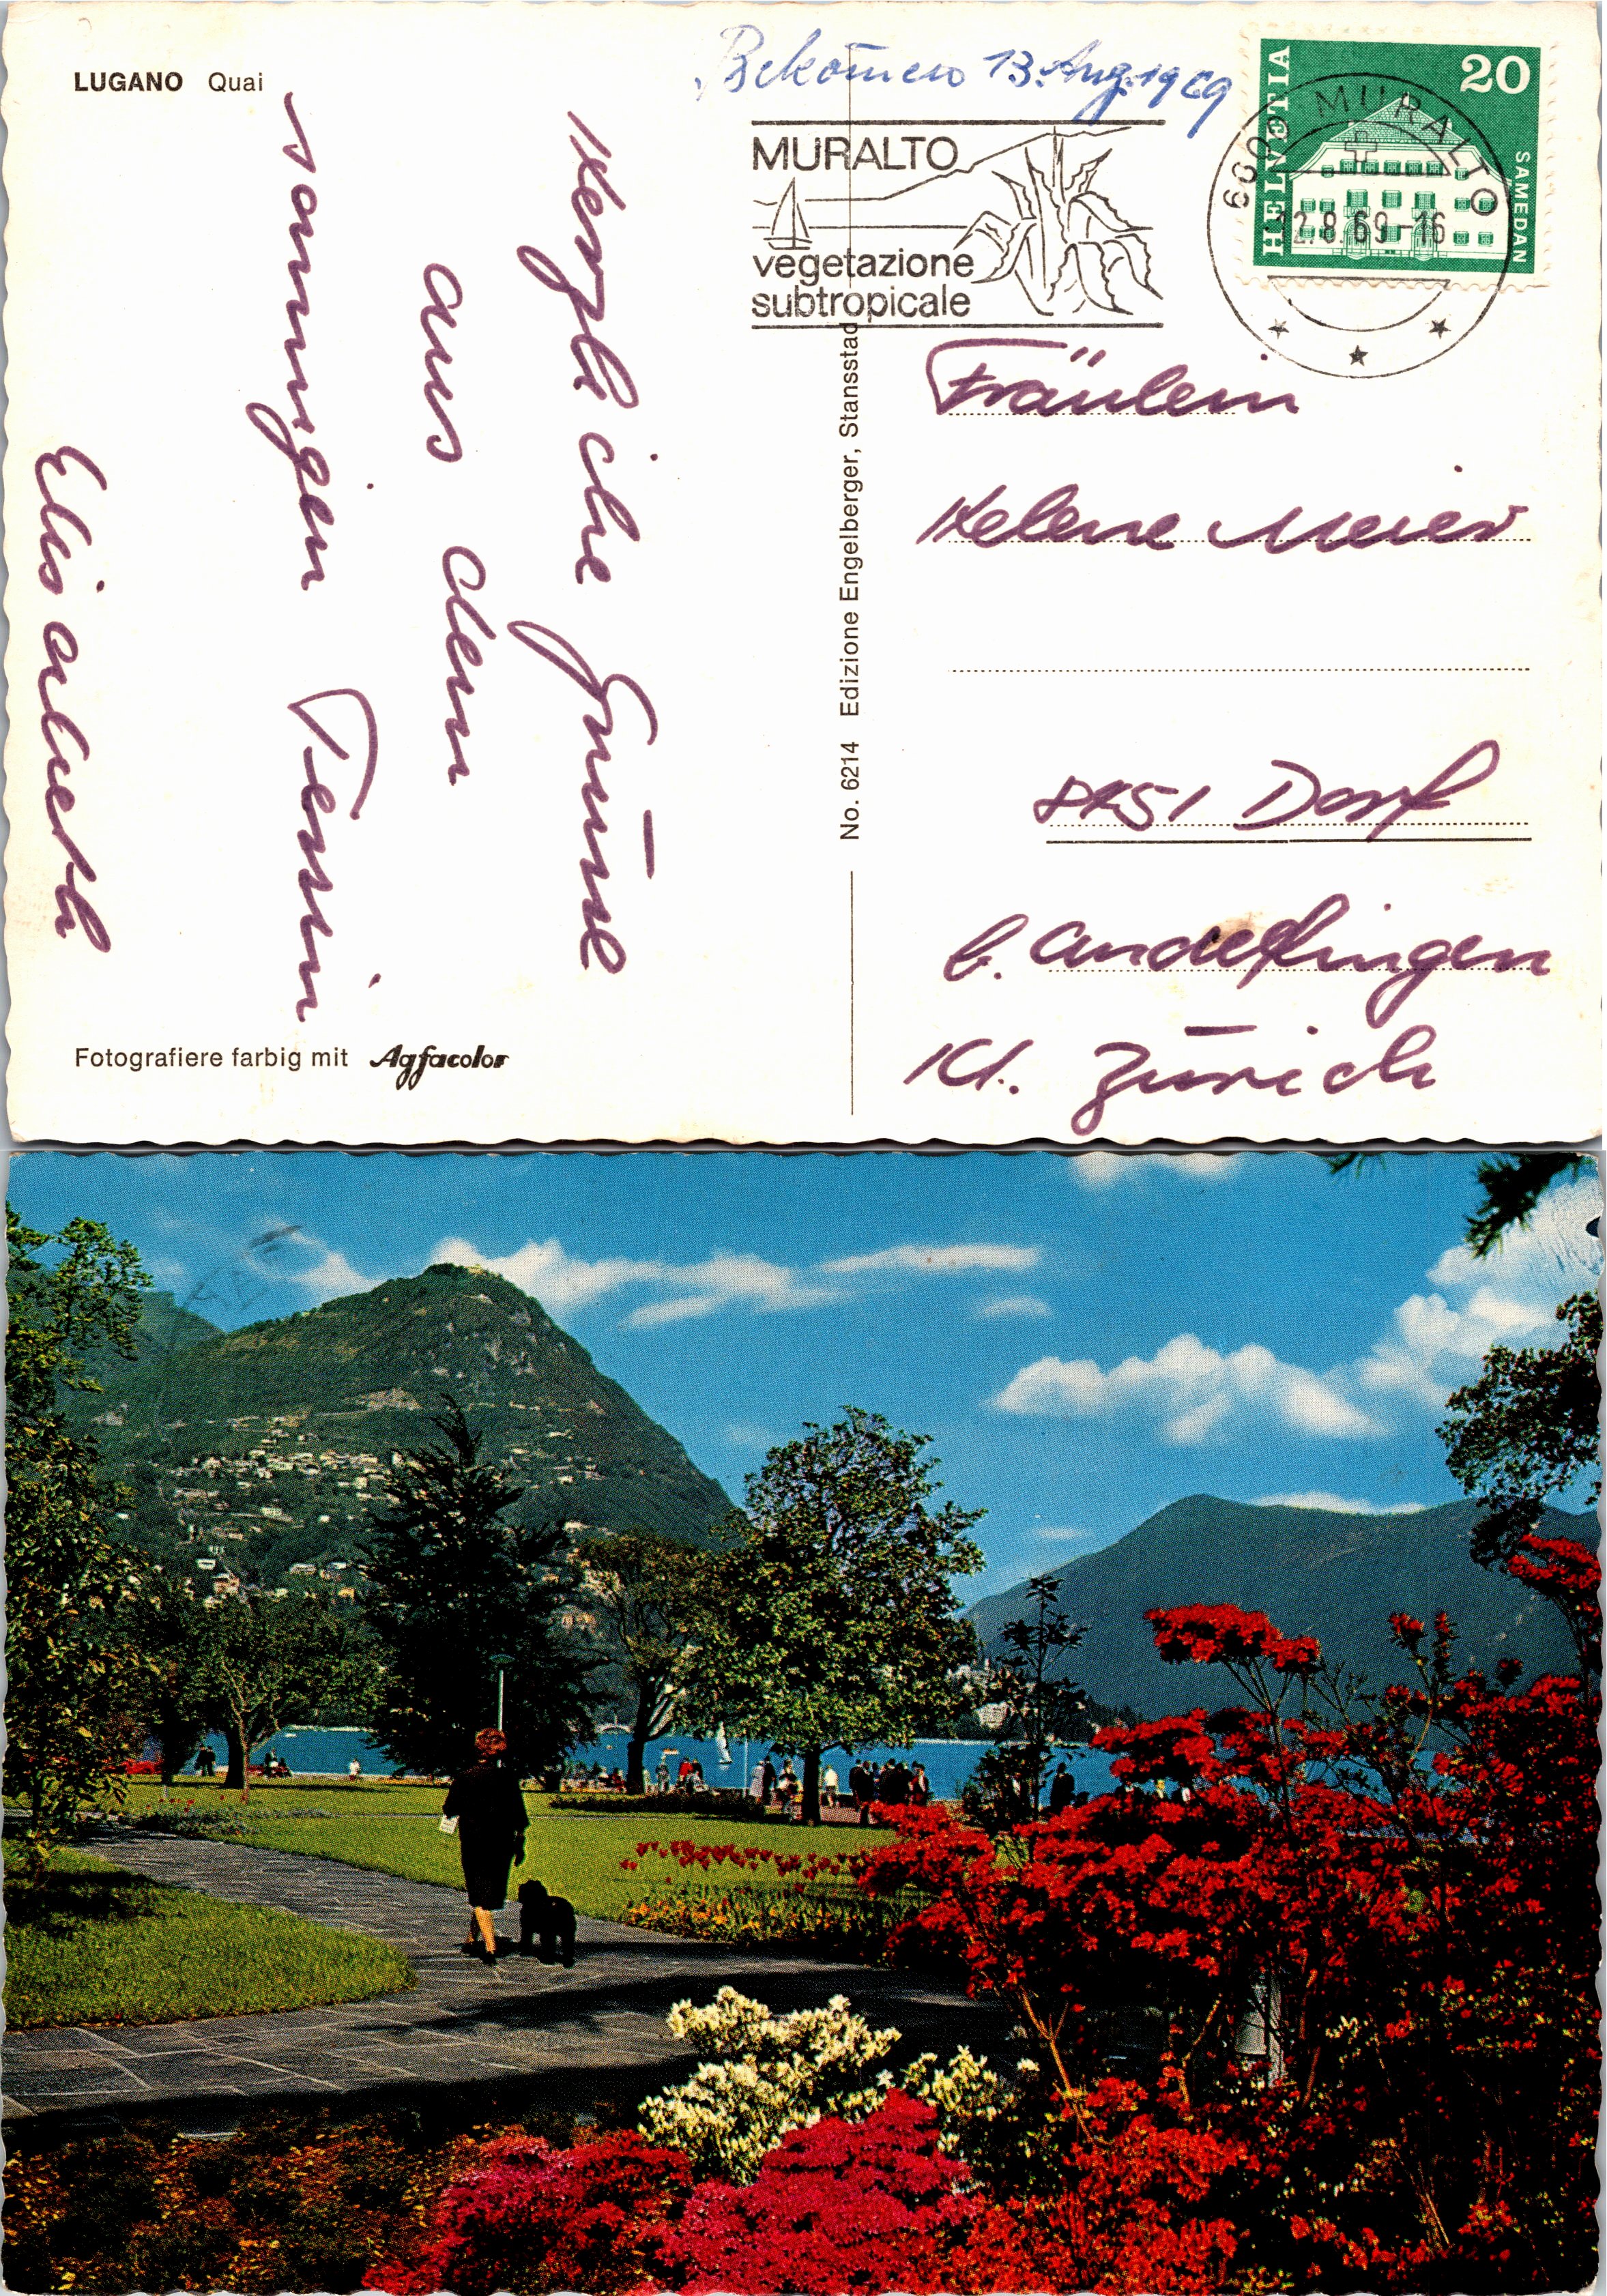 LUGANO Quai
Bekom̄en 13. Aug. 1969
HELVETIA
20
SAMEDAN
6600 MURALTO
12.8.69-16
MURALTO
vegetazione
subtropicale
Herzliche Grüsse
aus dem
sonnigen Tessin
Elisabeth
No. 6214 Edizione Engelberger, Stansstad
Fräulein
Helene Meier
8451 Dorf
b. Andelfingen
Kt. Zürich
Fotografiere farbig mit Agfacolor